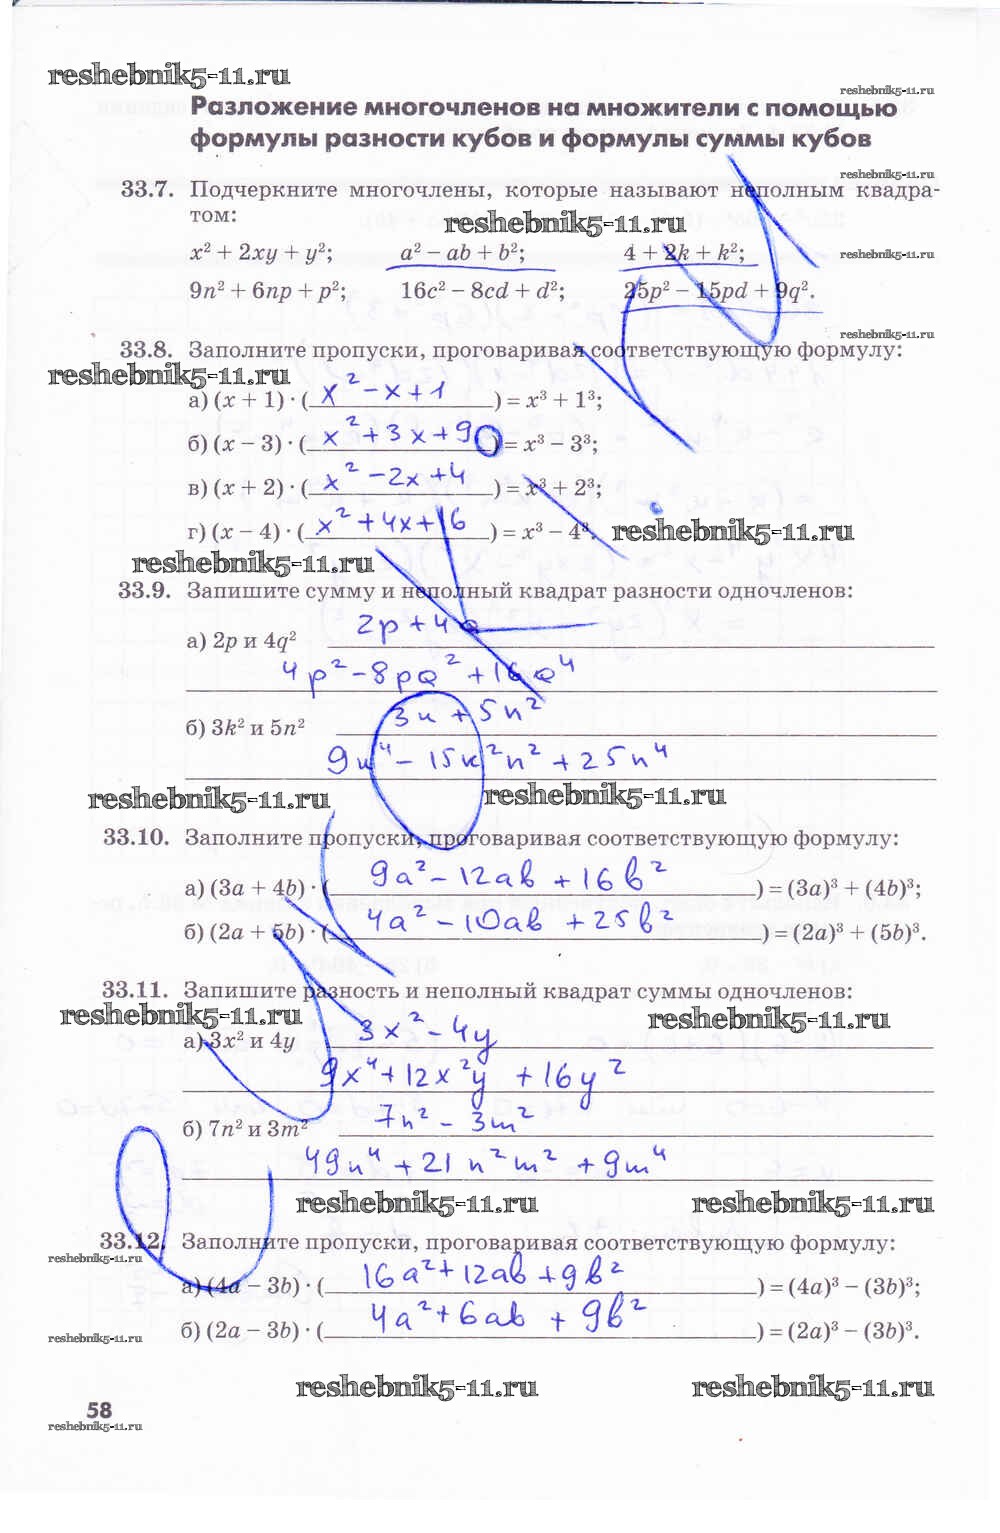 reshebnik5-11.ru
reshebnik5-11.ru
Разложение многочленов на множители с помощью
формулы разности кубов и формулы суммы кубов
reshebnik5-11.ru
33.7. Подчеркните многочлены, которые называют неполным квадра-
том:
reshebnik5-11.ru
x² + 2xy + y²; a² − ab + b²; 4 + 2k + k²;
reshebnik5-11.ru
9n² + 6np + p²; 16c² − 8cd + d²; 25p² − 15pd + 9q².
reshebnik5-11.ru
33.8. Заполните пропуски, проговаривая соответствующую формулу:
reshebnik5-11.ru
а) (x + 1) · (x² − x + 1) = x³ + 1³;
б) (x − 3) · (x² + 3x + 9) = x³ − 3³;
в) (x + 2) · (x² − 2x + 4) = x³ + 2³;
г) (x − 4) · (x² + 4x + 16) = x³ − 4³.
reshebnik5-11.ru
reshebnik5-11.ru
33.9. Запишите сумму и неполный квадрат разности одночленов:
а) 2p и 4q² 2p + 4
4p² − 8pq² + 16q⁴
б) 3k² и 5n² 3k + 5n²
9k⁴ − 15k²n² + 25n⁴
reshebnik5-11.ru reshebnik5-11.ru
33.10. Заполните пропуски, проговаривая соответствующую формулу:
а) (3a + 4b) · (9a² − 12ab + 16b²) = (3a)³ + (4b)³;
б) (2a + 5b) · (4a² − 10ab + 25b²) = (2a)³ + (5b)³.
33.11. Запишите разность и неполный квадрат суммы одночленов:
reshebnik5-11.ru reshebnik5-11.ru
а) 3x² и 4y 3x² − 4y
9x⁴ + 12x²y + 16y²
б) 7n² и 3m² 7n² − 3m²
49n⁴ + 21n²m² + 9m⁴
reshebnik5-11.ru reshebnik5-11.ru
33.12. Заполните пропуски, проговаривая соответствующую формулу:
reshebnik5-11.ru
а) (4a − 3b) · (16a² + 12ab + 9b²) = (4a)³ − (3b)³;
б) (2a − 3b) · (4a² + 6ab + 9b²) = (2a)³ − (3b)³.
reshebnik5-11.ru
reshebnik5-11.ru reshebnik5-11.ru
58
reshebnik5-11.ru